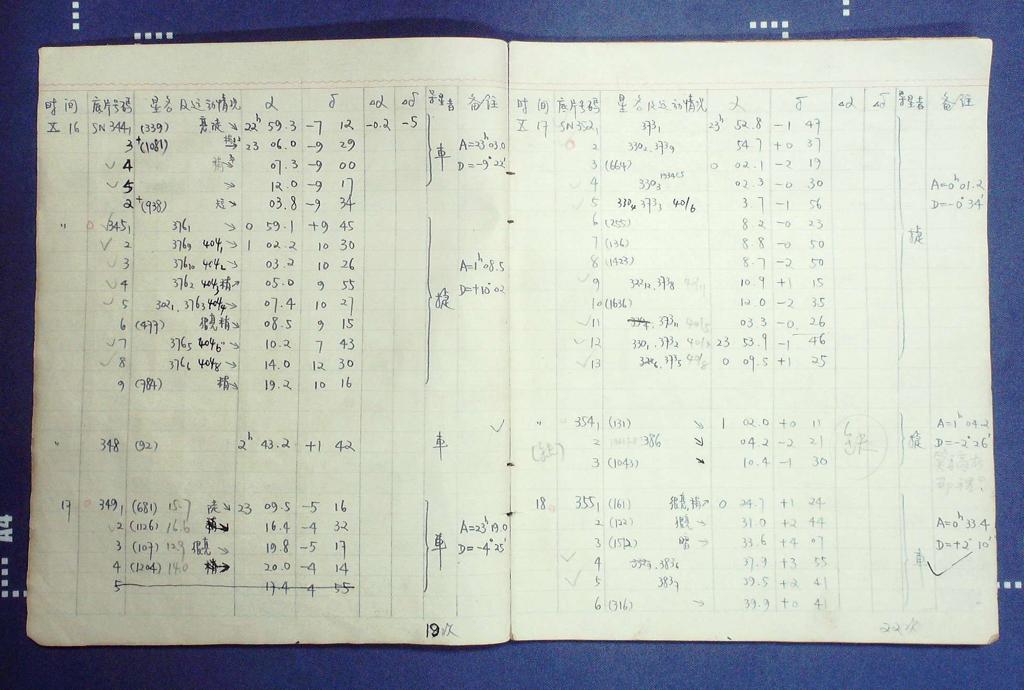 时间 底片号码 星名及运动情况 α δ Δα Δδ 导星者 备注
X 16 SN344₁ (339) 22ʰ 59.3 -7 12 -0.2 -5
3 +(1081) 23 06.0 -9 29 車 A=23ʰ03.0
4 07.3 -9 00 D=-9°22'
5 12.0 -9 17
2 +(938) 03.8 -9 34
" 345₁ 376₁ 0 59.1 +9 45
2 376₉ 404₁ 1 02.2 10 30
3 376₁₀ 404₂ 03.2 10 26 A=1ʰ08.5
4 376₂ 404₃ 05.0 9 55 D=+10°02
5 302₁, 376₃ 404₄ 07.4 10 27
6 (477) 08.5 9 15
7 376₅ 404₆ 10.2 7 43
8 376₆ 404₈ 14.0 12 30
9 (784) 19.2 10 16
" 348 (92) 2ʰ 43.2 +1 42 車
17 349₁ (681) 15.7 23 09.5 -5 16
2 (1126) 16.6 16.4 -4 32 A=23ʰ19.0
3 (107) 12.9 19.8 -5 17 車 D=-4°25'
4 (1204) 14.0 20.0 -4 14
5 17.4 -4 55
19次
时间 底片号码 星名及运动情况 α δ Δα Δδ 导星者 备注
X 17 SN352₁ 373₁ 23ʰ 52.8 -1 47
2 330₂, 373₉ 54.7 +0 37
3 (664) 0 02.1 -2 19
4 330₃ 02.3 -0 30 A=0ʰ01.2
5 330₄ 373₃ 40/6 3.7 -1 56 D=-0°34'
6 (255) 8.2 -0 23
7 (136) 8.8 -0 50
8 (1423) 8.7 -2 50
9 10.9 +1 15
10 (1636) 12.0 -2 35
11 373₁₁ 03.3 -0 26
12 330₁, 373₂ 23 53.9 -1 46
13 0 09.5 +1 25
" 354₁ (131) 1 02.0 +0 11 A=1ʰ04.2
2 386 04.2 -2 21 D=-2°26'
3 (1043) 10.4 -1 30
18 355₁ (161) 0 24.7 +1 24
2 (122) 31.0 +2 44 A=0ʰ33.4
3 (1512) 暗 33.6 +4 07 D=+2°10'
4 383₆ 37.9 +3 55 車
5 383₇ 39.5 +2 41
6 (316) 39.9 +0 41
22次